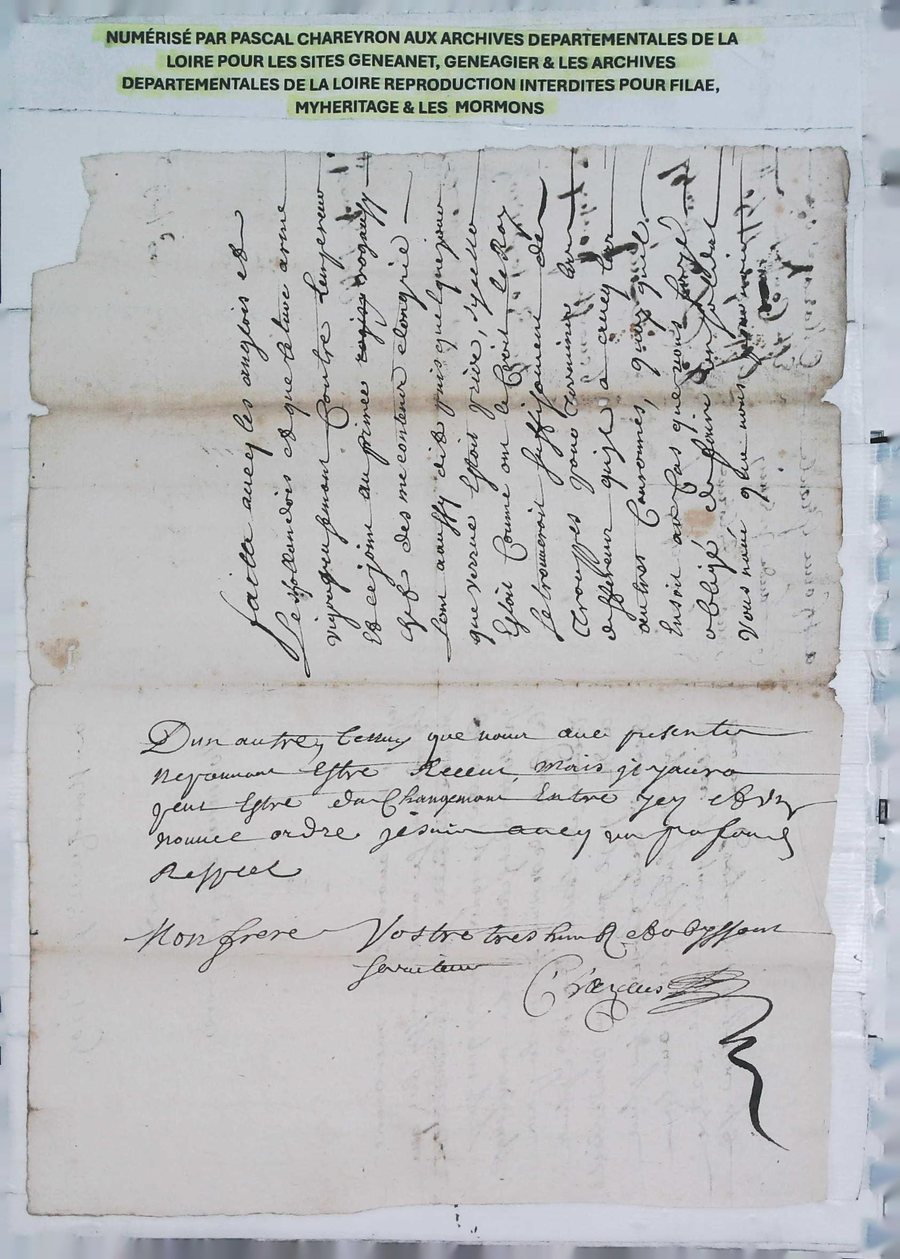 NUMÉRISÉ PAR PASCAL CHAREYRON AUX ARCHIVES DEPARTEMENTALES DE LA
LOIRE POUR LES SITES GENEANET, GENEAGIER & LES ARCHIVES
DEPARTEMENTALES DE LA LOIRE REPRODUCTION INTERDITES POUR FILAE,
MYHERITAGE & LES MORMONS
faitte avecq les anglois et
les holandois et que
vigoureusement Contre Lempereur
Et ce joint au prince
des mecontens dongrie
Lont aussy dit puis quelque jour
que verrue Estoit prise, sy cella
Estoit Comme on le Croit le Roy
se trouveroit suffisament de
trouppes pour terminer Leur
different quil a avecq Les
autres Couronnes, quoy quil
Ensoit au Cas que vous soyé
obligé de faire un soldat
Vous navé que
Dun autre, Celluy que vous avé presenté
Nepouvant Estre Receu, Mais jl yaura
peut Estre du Changemant Entre jcy et un
nouvel ordre jesuis avecq un profond
Respect
Mon frere Vostre tres humble et obeyssant
serviteur